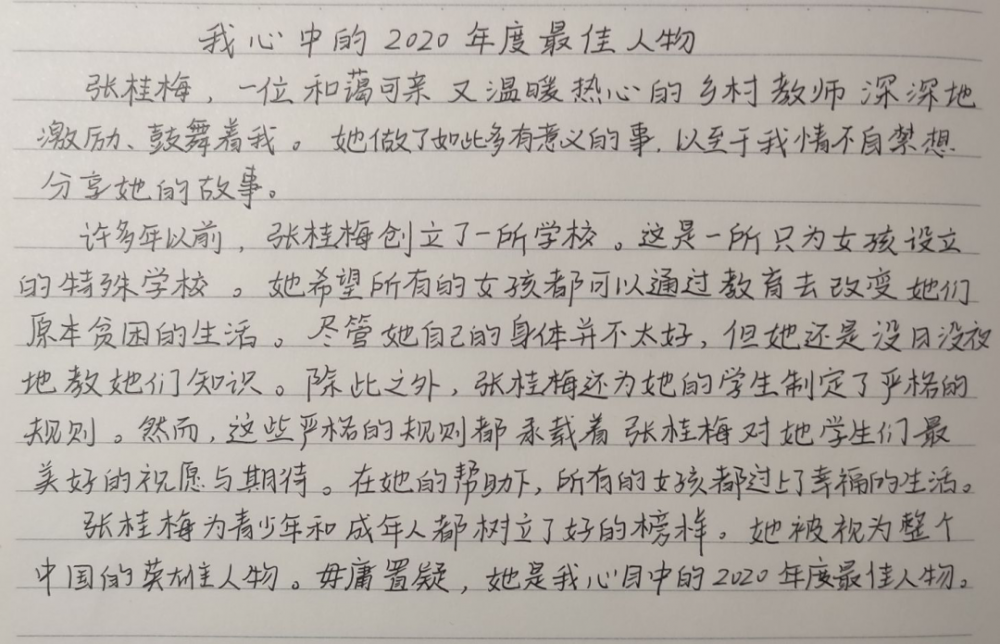 我心中的2020年度最佳人物
张桂梅，一位和蔼可亲又温暖热心的乡村教师深深地
激励、鼓舞着我。她做了如此多有意义的事，以至于我情不自禁想
分享她的故事。
许多年以前，张桂梅创立了一所学校。这是一所只为女孩设立
的特殊学校。她希望所有的女孩都可以通过教育去改变她们
原本贫困的生活。尽管她自己的身体并不太好，但她还是没日没夜
地教她们知识。除此之外，张桂梅还为她的学生制定了严格的
规则。然而，这些严格的规则都承载着张桂梅对她学生们最
美好的祝愿与期待。在她的帮助下，所有的女孩都过上了幸福的生活。
张桂梅为青少年和成年人都树立了好的榜样。她被视为整个
中国的英雄人物。毋庸置疑，她是我心目中的2020年度最佳人物。